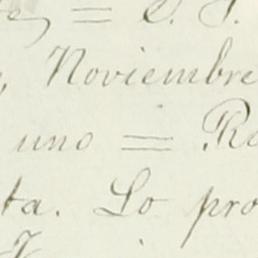 Noviembre
uno = Re
ta. Lo pro